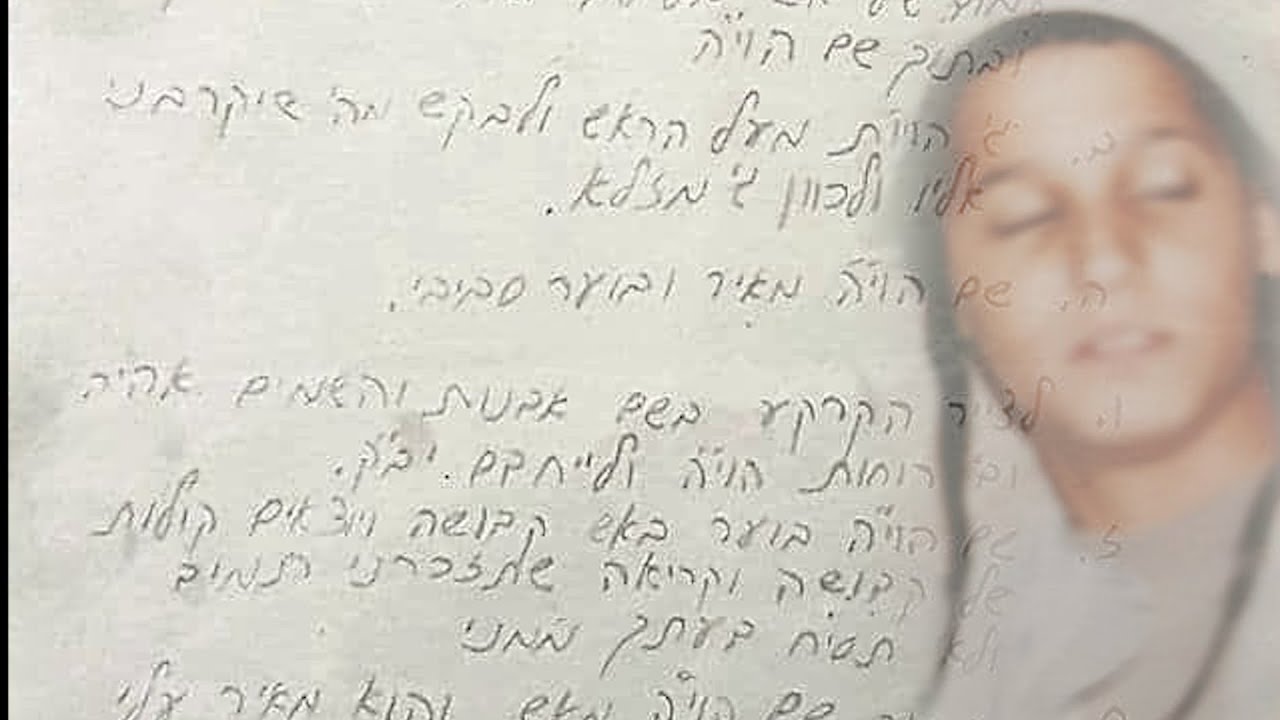 ובתוך שם הוי"ה
ג' הוי"ת מעל הראש ולבקש מה' שיקרבני
אליו ולכוון ג' מזלא.
ה. שם הוי"ה מאיר ובוער סביבי.
ו. לצייר הקרקע בשם אדנות והשמים אהיה
וב' רוחות הוי"ה ולייחדם. יב"ק.
ז. שם הוי"ה בוער באש קדושה ויוצאים קולות
של קדושה וקריאה שתזכרני תמיד
ולא תסיח דעתך ממני
שם הוי"ה מאש והוא מאיר עלי